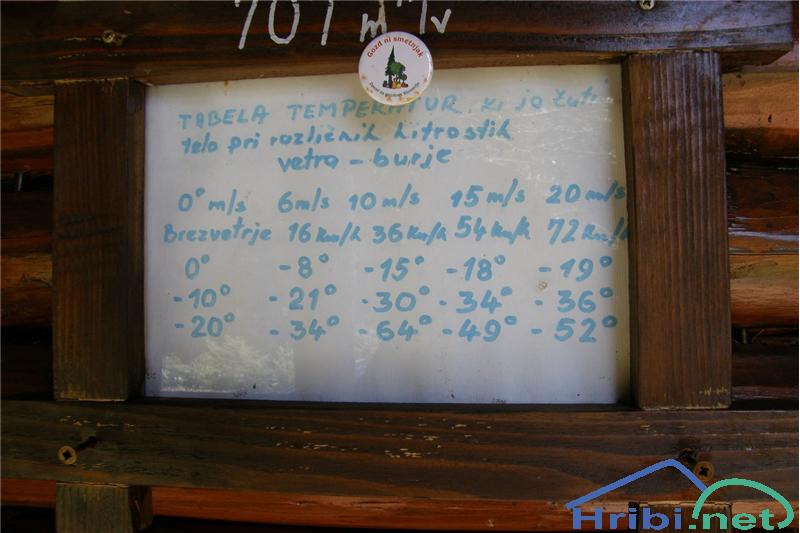 707 m /v
Gozd ni smetnjak
TABELA TEMPERATUR ki jo čuti
telo pri različnih hitrostih
vetra - burje
0° m/s 6m/s 10 m/s 15 m/s 20 m/s
Brezvetrje 16 km/h 36 km/h 54 km/h 72 km/h
0° -8° -15° -18° -19°
-10° -21° -30° -34° -36°
-20° -34° -64° -49° -52°
Hribi.net